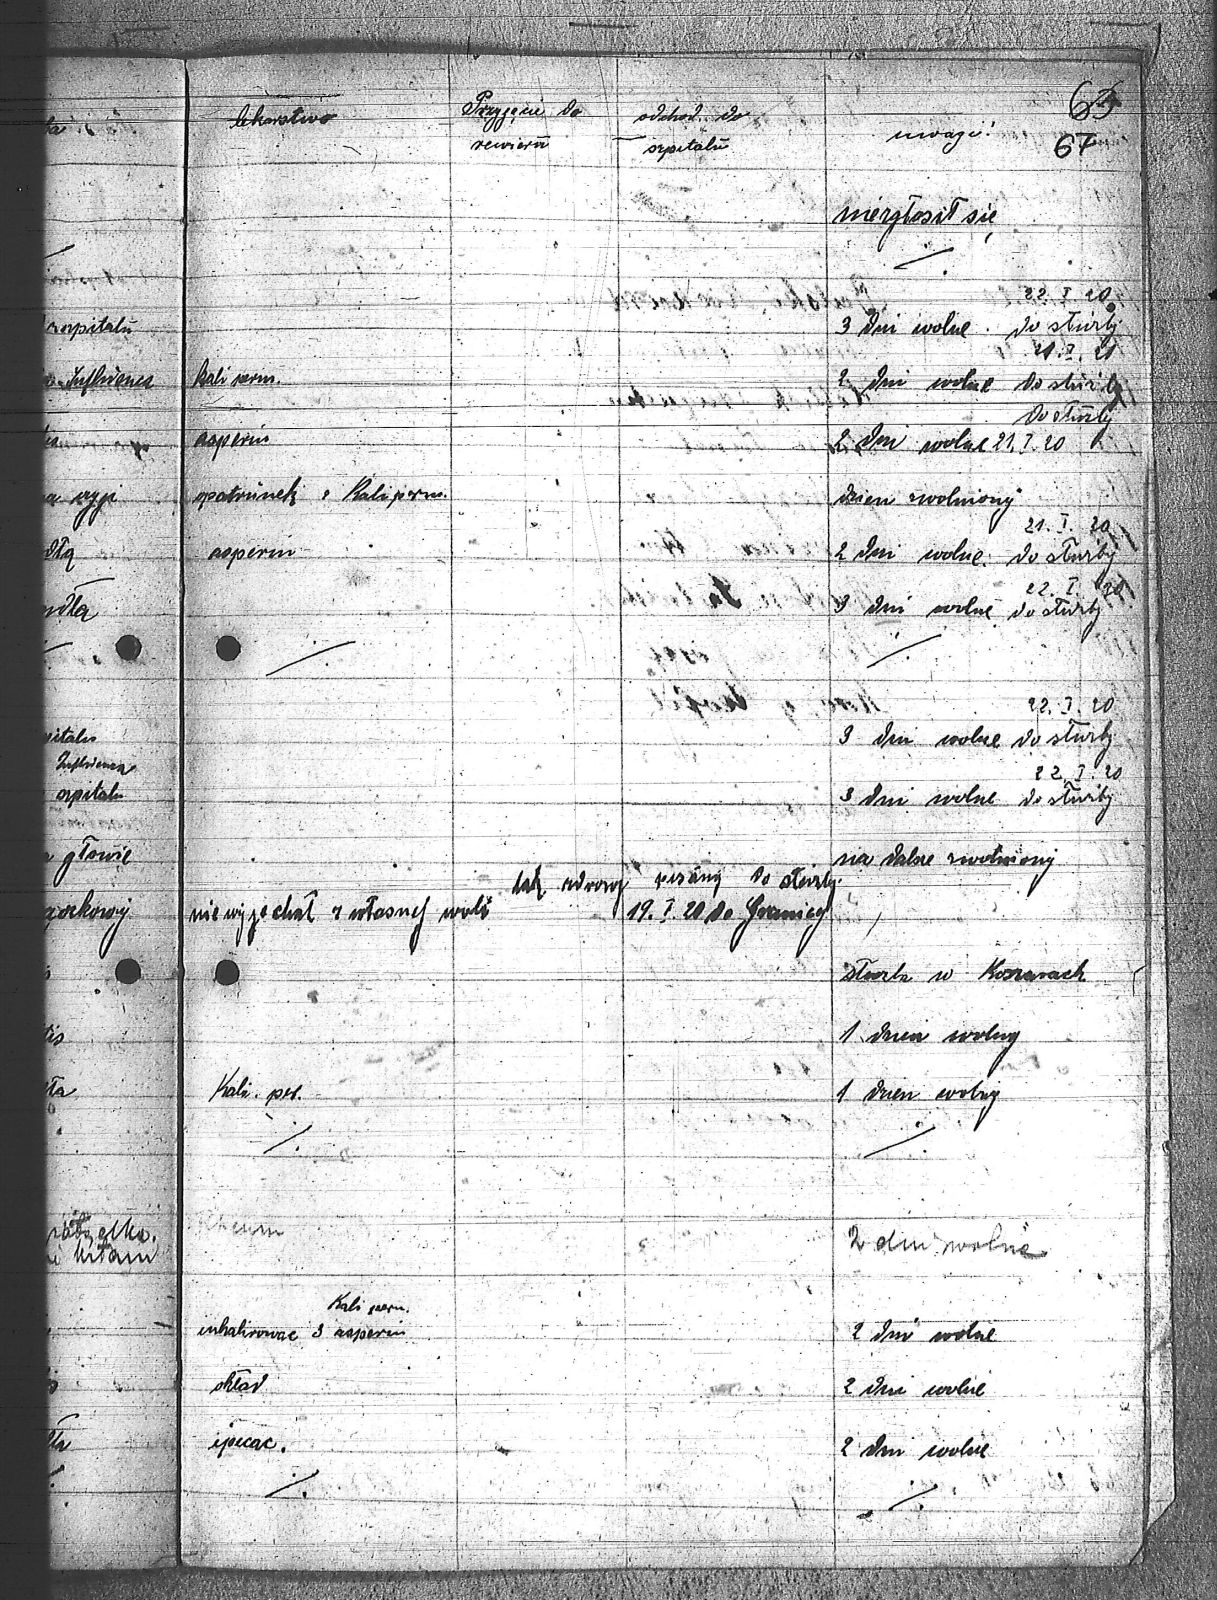 lekarstwo Przyjęcie do odchod. do uwagi! 65
rewiéru szpitalu 67
niezgłosił się
./.
22. I. 20
szpitalu 3 dni wolne. do służby
21. I. 20
Influenca Kali perm. 2 dni wolne do służby
do służby
asperin 2 dni wolne 21. I. 20
szyji opatrunek z Kali perm. dzien zwolniony
21. I. 20
asperin 2 dni wolne. do służby
22. I. 20
3 dni wolne do służby
./. ./.
22. I. 20
3 dni wolne do służby
Influenca 22. I. 20
szpitalu 3 dni wolne do służby
głowie na dalsze zwolniony
jak zdrowy pisany do służby
nie wyjechał z własnej woli 19. I. 20 do Granicy
służba w Koszarach
1 dzien wolny
Kali. per. 1 dzien wolny
./. ./.
Rheum 2 dni wolne
Kali perm.
inhalirowac 3 asperin 2 dni wolne
okład 2 dni wolne
ipecac. 2 dni wolne
./. ./.